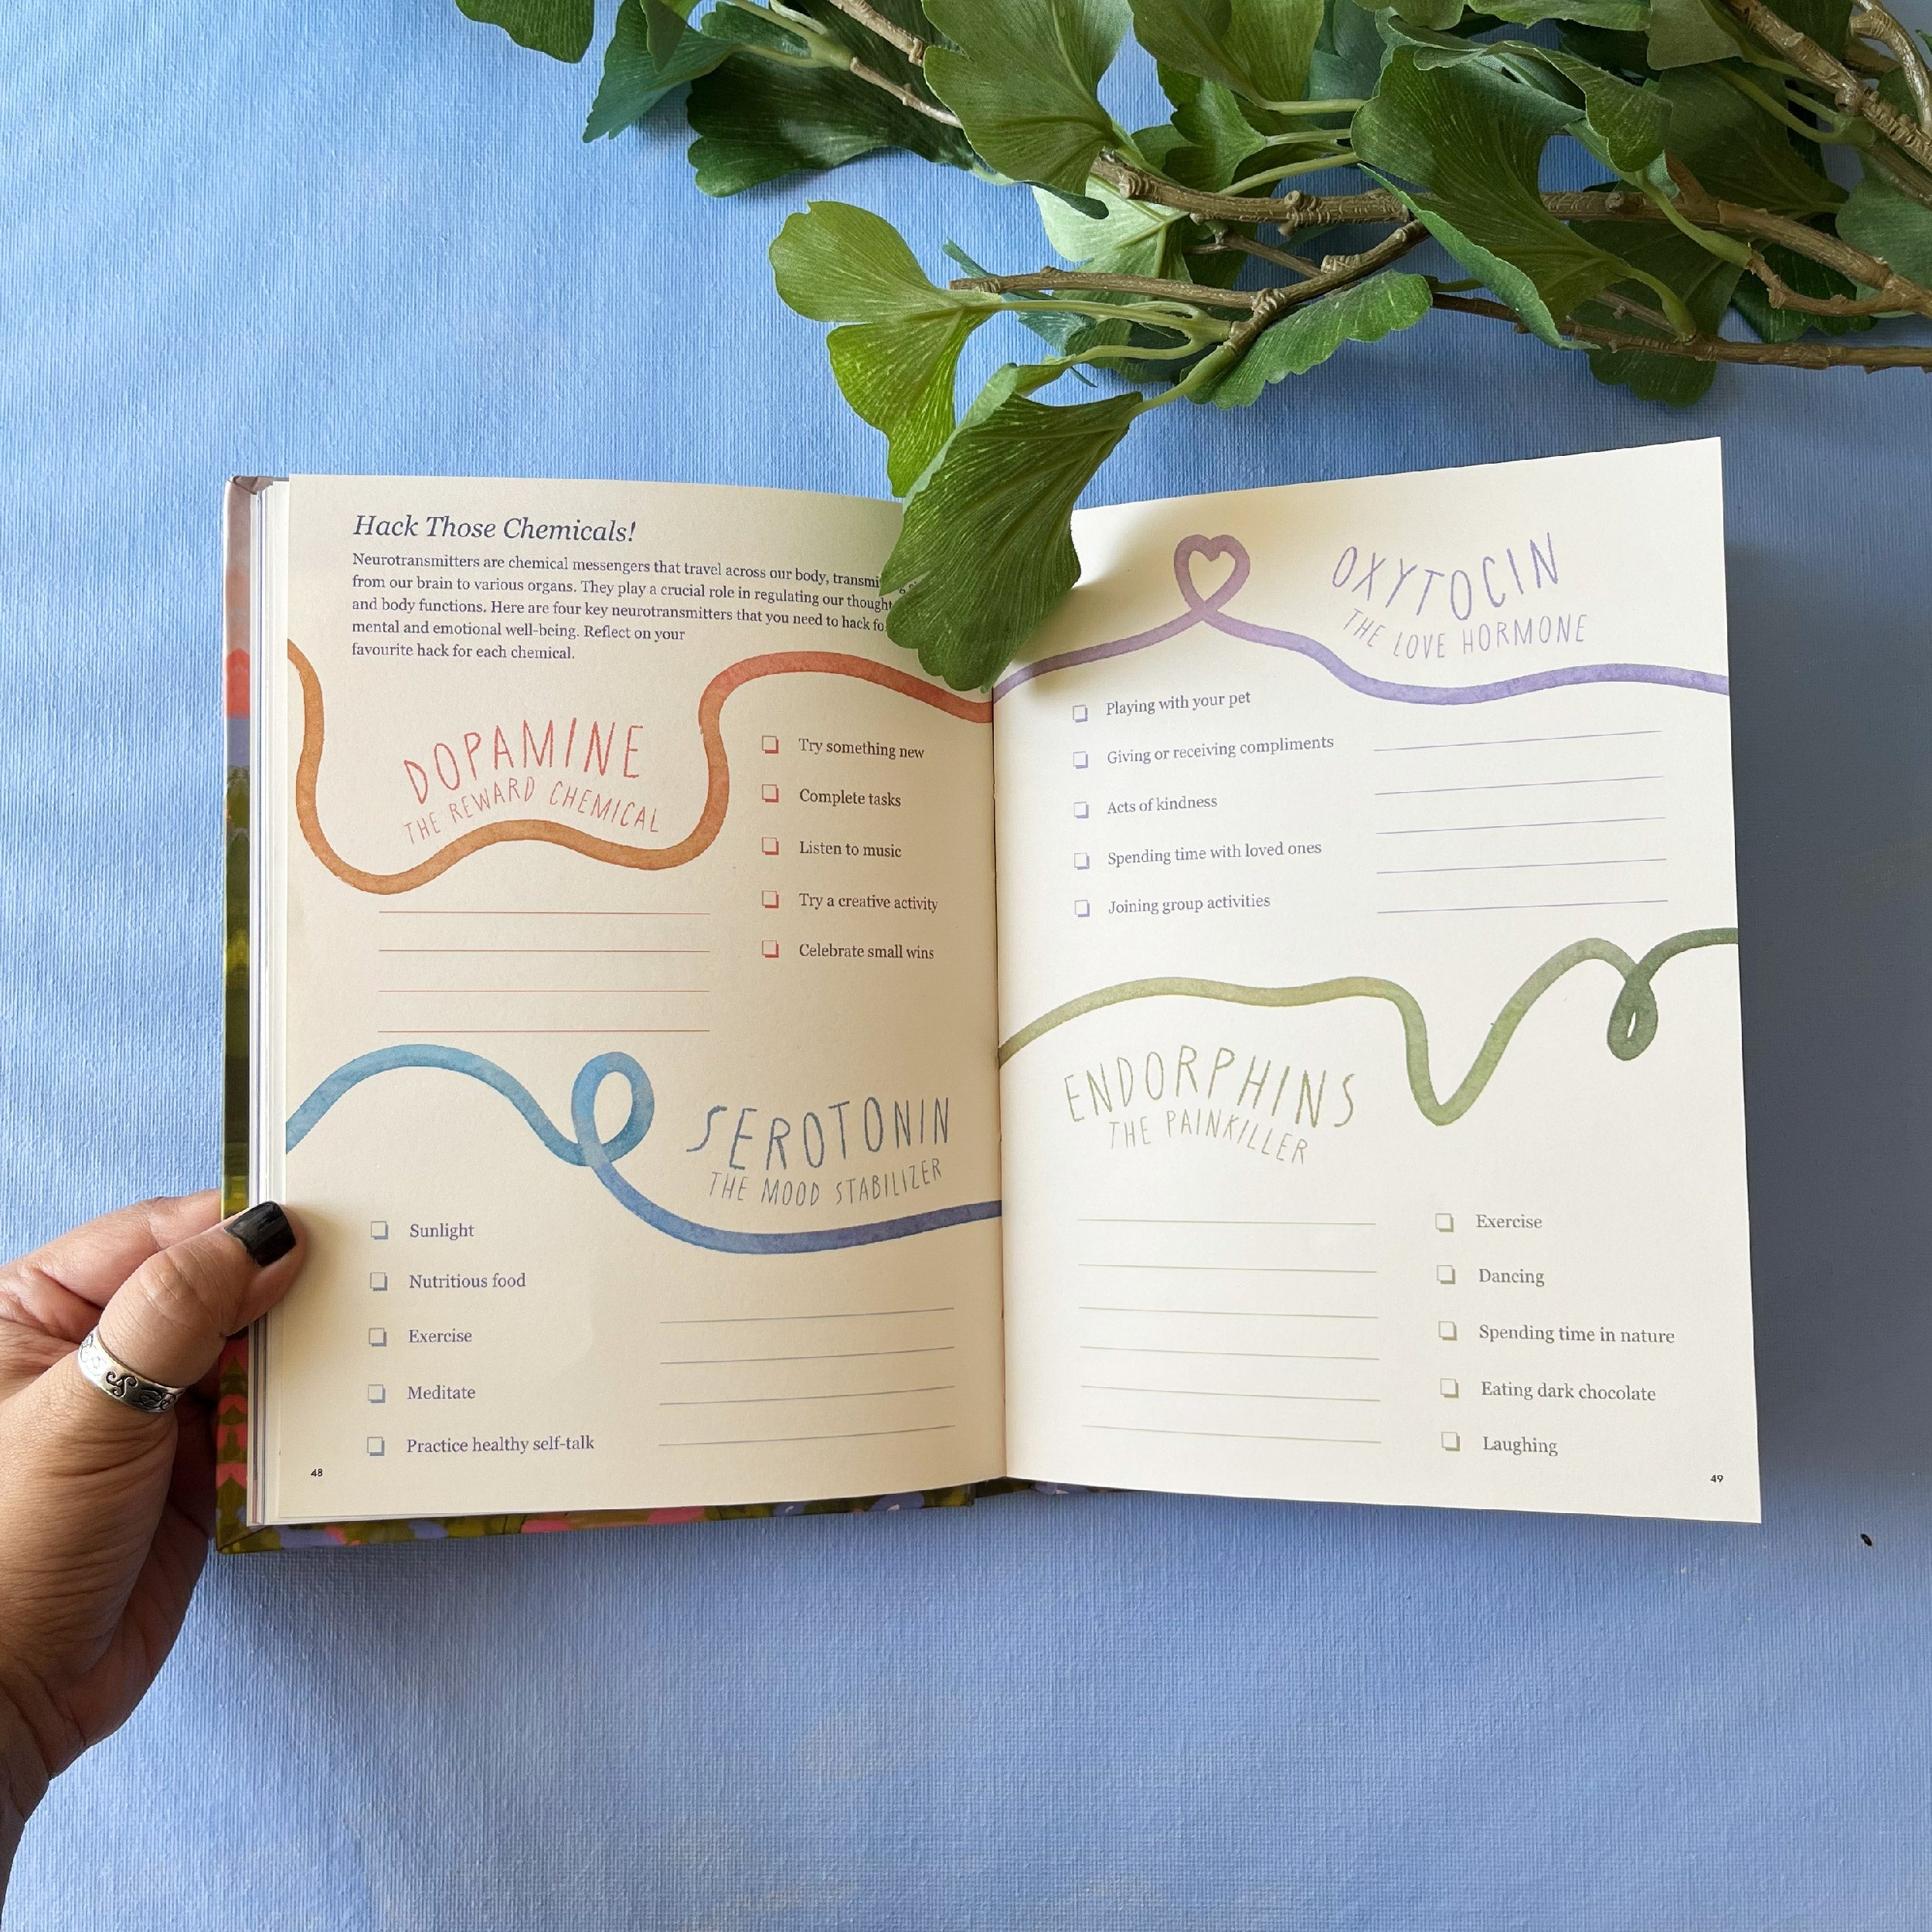 Hack Those Chemicals!
Neurotransmitters are chemical messengers that travel across our body,
from our brain to various organs. They play a crucial role in regulating our
and body functions. Here are four key neurotransmitters that you need to hack
mental and emotional well-being. Reflect on your
favourite hack for each chemical.
DOPAMINE
THE REWARD CHEMICAL
Try something new
Complete tasks
Listen to music
Try a creative activity
Celebrate small wins
SEROTONIN
THE MOOD STABILIZER
Sunlight
Nutritious food
Exercise
Meditate
Practice healthy self-talk
48
OXYTOCIN
THE LOVE HORMONE
Playing with your pet
Giving or receiving compliments
Acts of kindness
Spending time with loved ones
Joining group activities
ENDORPHINS
THE PAINKILLER
Exercise
Dancing
Spending time in nature
Eating dark chocolate
Laughing
49